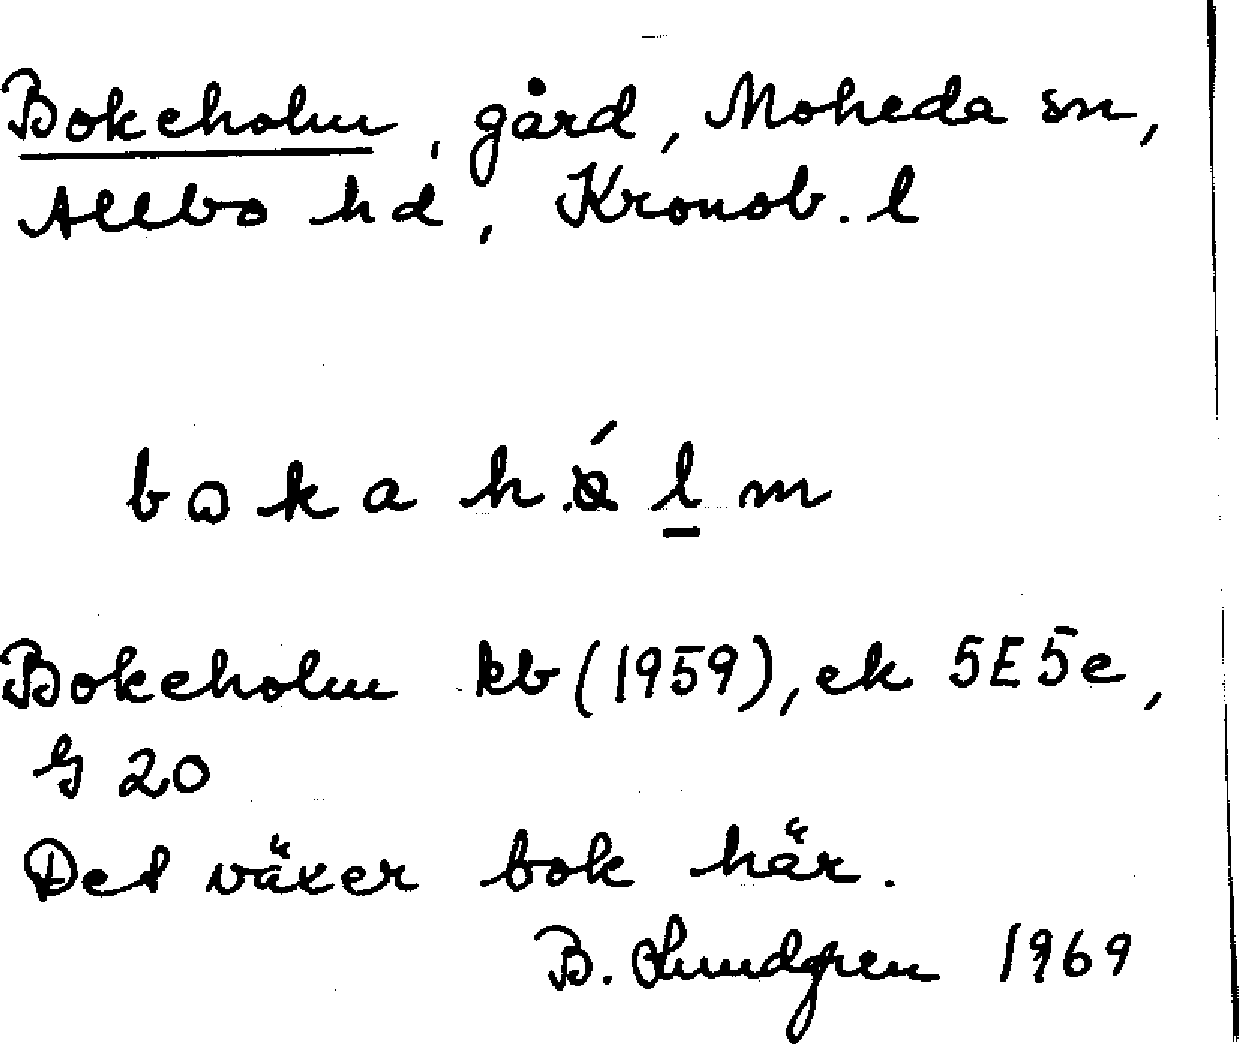 Bokeholm, gård, Moheda sn,
Allbo hd, Kronob. l
bokahálm
Bokeholm kb (1959), ek 5E5e,
G 20
Det växer bok här.
B. Lundgren 1969